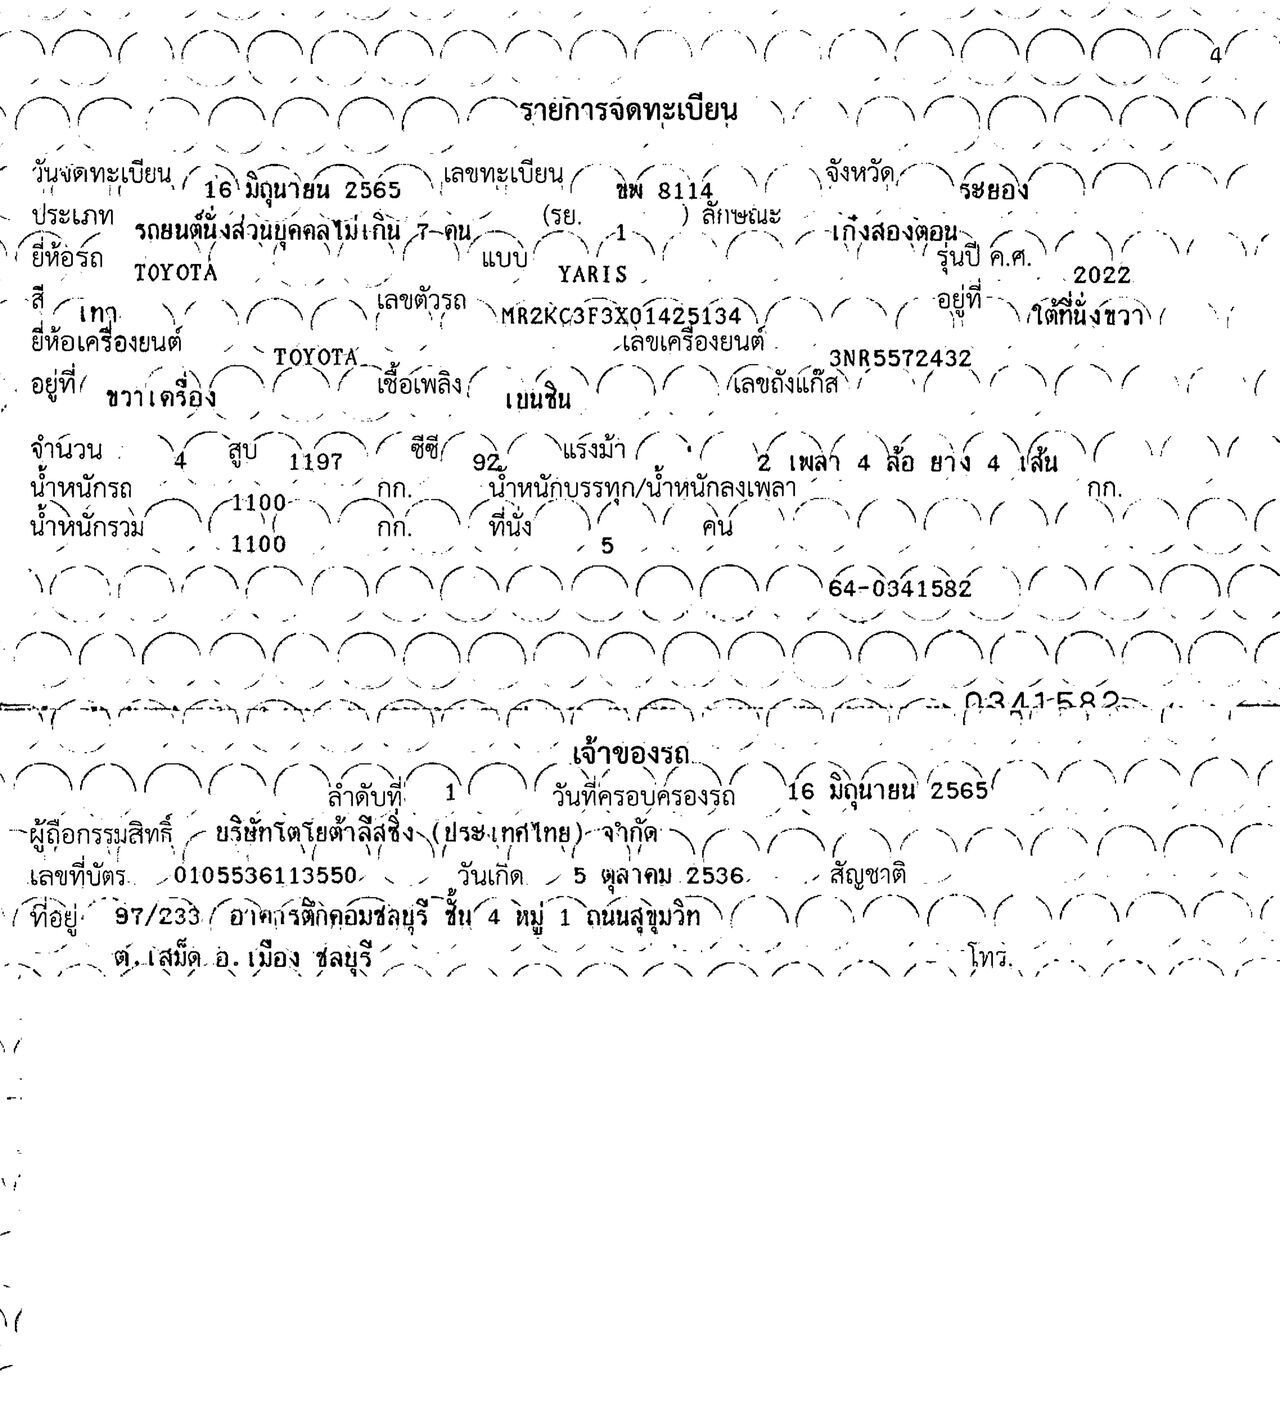 4
รายการจดทะเบียน
วันจดทะเบียน 16 มิถุนายน 2565 เลขทะเบียน ขพ 8114 จังหวัด ระยอง
ประเภท รถยนต์นั่งส่วนบุคคลไม่เกิน 7 คน (รย. 1 ) ลักษณะ เก๋งสองตอน
ยี่ห้อรถ TOYOTA แบบ YARIS รุ่นปี ค.ศ. 2022
สี เทา เลขตัวรถ MR2KC3F3X01425134 อยู่ที่ ใต้ที่นั่งขวา
ยี่ห้อเครื่องยนต์ TOYOTA เลขเครื่องยนต์ 3NR5572432
อยู่ที่ ขวาเครื่อง เชื้อเพลิง เบนซิน เลขถังแก๊ส
จำนวน 4 สูบ 1197 ซีซี 92 แรงม้า 2 เพลา 4 ล้อ ยาง 4 เส้น
น้ำหนักรถ 1100 กก. น้ำหนักบรรทุก/น้ำหนักลงเพลา กก.
น้ำหนักรวม 1100 กก. ที่นั่ง 5 คน
64-0341582
0341582
เจ้าของรถ
ลำดับที่ 1 วันที่ครอบครองรถ 16 มิถุนายน 2565
ผู้ถือกรรมสิทธิ์ บริษัทโตโยต้าลีสซิ่ง (ประเทศไทย) จำกัด
เลขที่บัตร 0105536113550 วันเกิด 5 ตุลาคม 2536 สัญชาติ
ที่อยู่ 97/233 อาคารตึกคอมชลบุรี ชั้น 4 หมู่ 1 ถนนสุขุมวิท
ต.เสม็ด อ.เมือง ชลบุรี โทร.